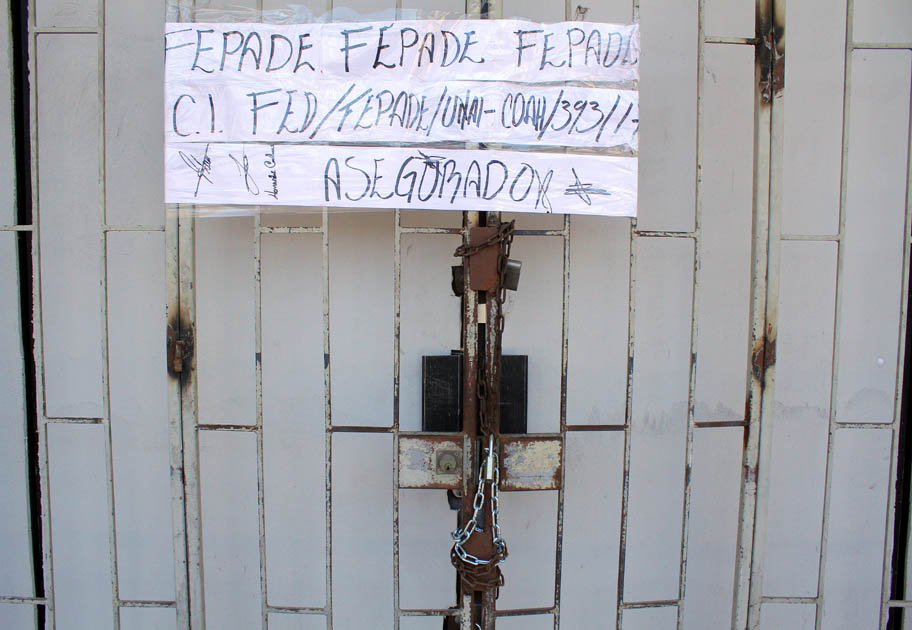 FEPADE FEPADE FEPADE
C.I. FED/FEPADE/UNAI-COAH/393/1
ASEGURADO